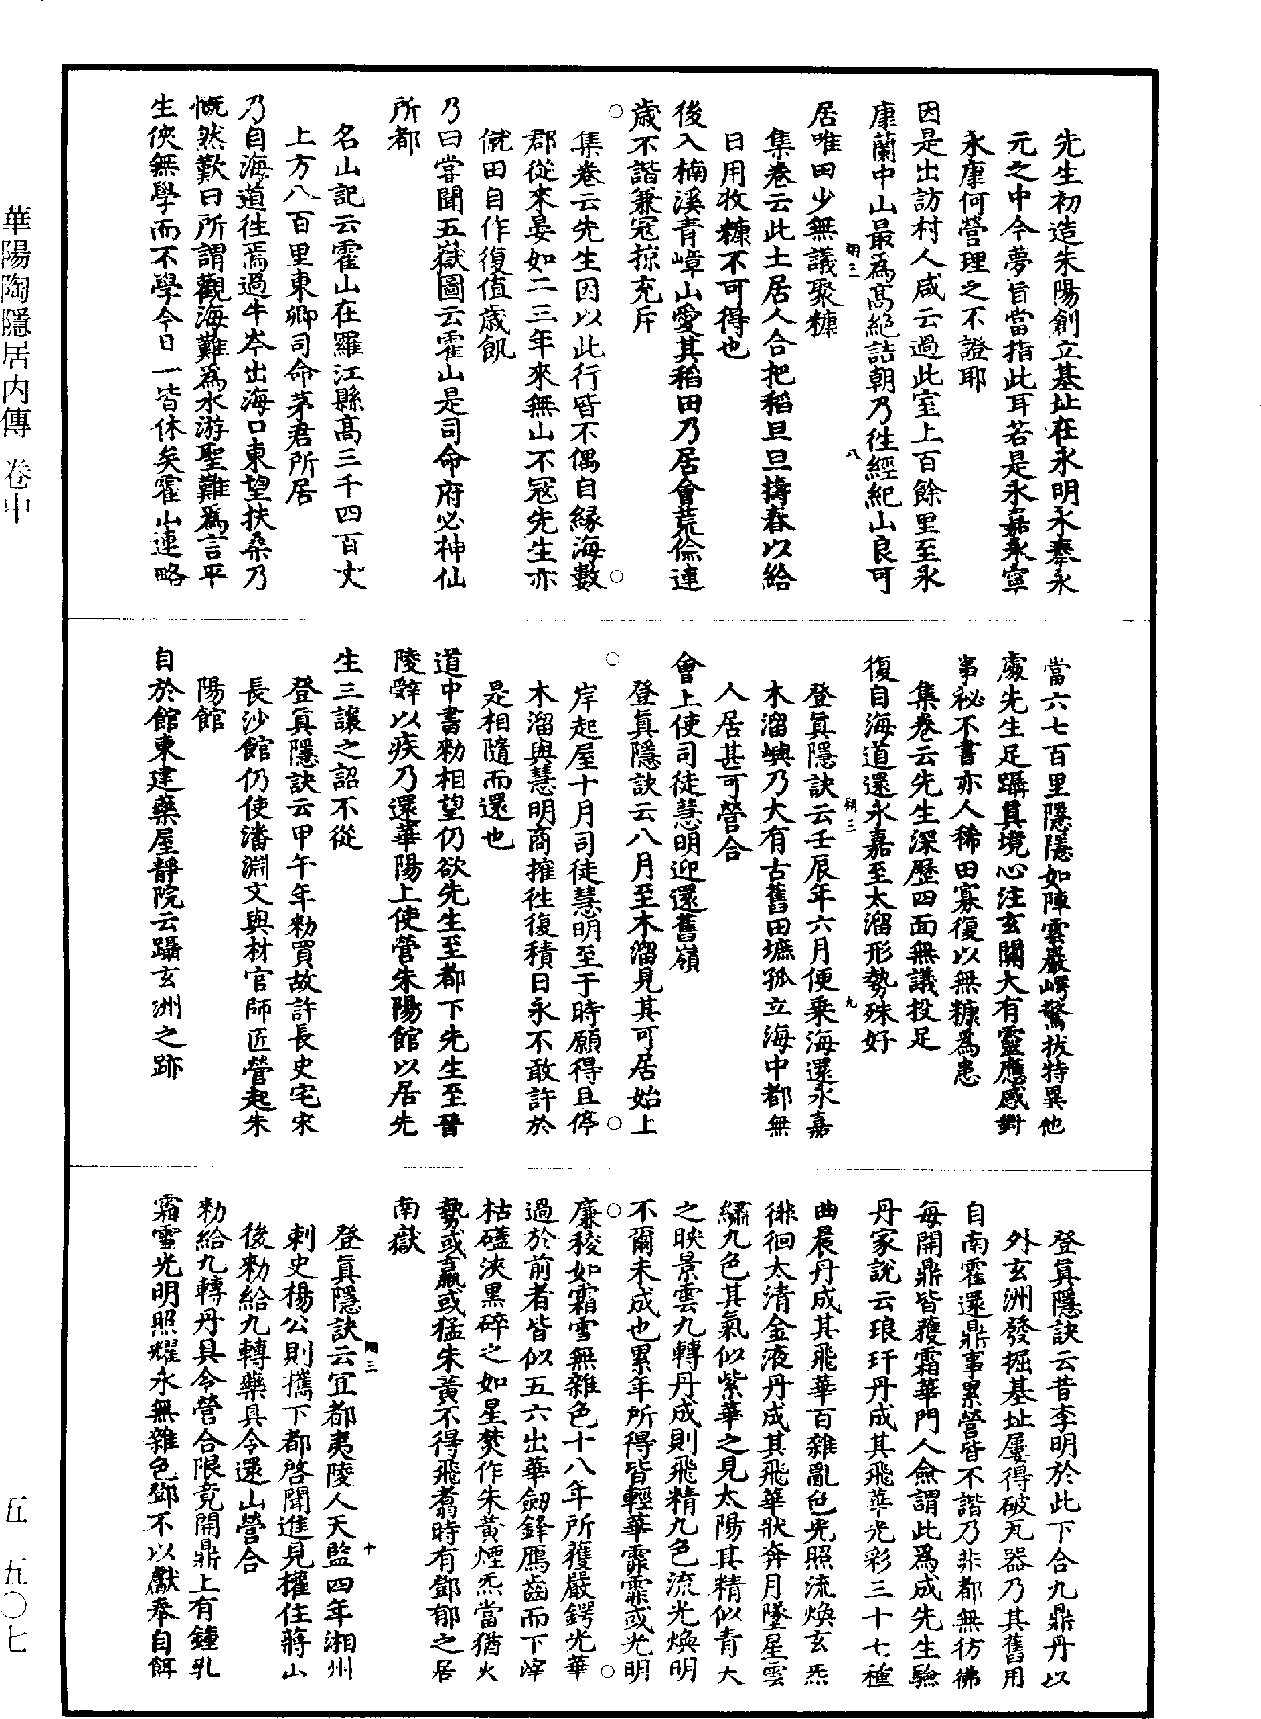 先生初造朱陽創立基址在永明永奉永
元之中今夢旨當指此耳若是永嘉永寧
永康何營理之不證耶
因是出訪村人咸云過此室上百餘里至永
康蘭中山最為高絕詰朝乃往經紀山良可
居唯田少無議聚糠
集卷云此土居人合把稻旦旦擣舂以給
日用收糠不可得也
後入楠溪青嶂山愛其稻田乃居會荒儉連
歲不諧兼寇掠充斥
集卷云先生因以此行皆不偶自緣海數
郡從來晏如二三年來無山不寇先生亦
僦田自作復值歲飢
乃曰嘗聞五嶽圖云霍山是司命府必神仙
所都
名山記云霍山在羅江縣高三千四百丈
上方八百里東卿司命茅君所居
乃自海道往焉過牛岑出海口東望扶桑乃
慨然歎曰所謂觀海難為水游聖難為言平
生俠無學而不學今日一皆休矣霍山連略
當六七百里隱隱如陣雲巖崿驚拔特異他
處先生足躡其境心注玄關大有靈應感對
事祕不書亦人稀田寡復以無糠為患
集卷云先生深歷四面無議投足
復自海道還永嘉至太溜形勢殊好
登真隱訣云壬辰年六月便乘海還永嘉
木溜嶼乃大有古舊田墌孤立海中都無
人居甚可營合
會上使司徒慧明迎還舊嶺
登真隱訣云八月至木溜見其可居始上
岸起屋十月司徒慧明至于時願得且停
木溜與慧明商搉往復積日永不敢許於
是相隨而還也
道中書勑相望仍欲先生至都下先生至晉
陵辭以疾乃還華陽上使營朱陽館以居先
生三讓之詔不從
登真隱訣云甲午年勑買故許長史宅宋
長沙館仍使潘淵文與材官師匠營起朱
陽館
自於館東建藥屋靜院云躡玄洲之跡
登真隱訣云昔李明於此下合九鼎丹以
外玄洲發掘基址屢得破瓦器乃其舊用
自南霍還鼎事累營皆不諧乃非都無彷彿
每開鼎皆獲霜華門人僉謂此為成先生驗
丹家說云琅玕丹成其飛華光彩三十七種
曲晨丹成其飛華百雜亂色光照流煥玄炁
徘徊太清金液丹成其飛華狀奔月墜星雲
繡九色其氣似紫華之見太陽其精似青天
之映景雲九轉丹成則飛精九色流光煥明
不爾未成也累年所得皆輕華霏霏或光明
廉稜如霜雪無雜色十八年所獲嚴鍔光華
過於前者皆似五六出華劒鋒鴈齒而下滓
枯礚浹黑碎之如星焚作朱黃煙炁當猶火
勢或羸或猛朱黃不得飛翥時有鄧郁之居
南嶽
登真隱訣云宜都夷陵人天監四年湘州
刺史楊公則攜下都啓聞進見權住蔣山
後勑給九轉藥具令還山營合
勑給九轉丹具令營合限竟開鼎上有鍾乳
霜雪光明照耀永無雜色鄧不以獻奉自餌
翔三 八
翔三 九
翔三 十
華陽陶隱居內傳 卷中
五 五九〇七